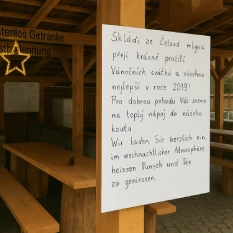 stenlos Getränke
stbrennung
Skláři ze Čelova mlýna
přejí krásné prožití
Vánočních svátků a všechno
nejlepší v roce 2019!
Pro dobrou pohodu Vás zveme
na teplý nápoj do našeho
koutu.
Wir laden Sie herzlich ein
im weihnachtlicher Atmosphäre
heissen Punsch und Tee
zu geniessen.